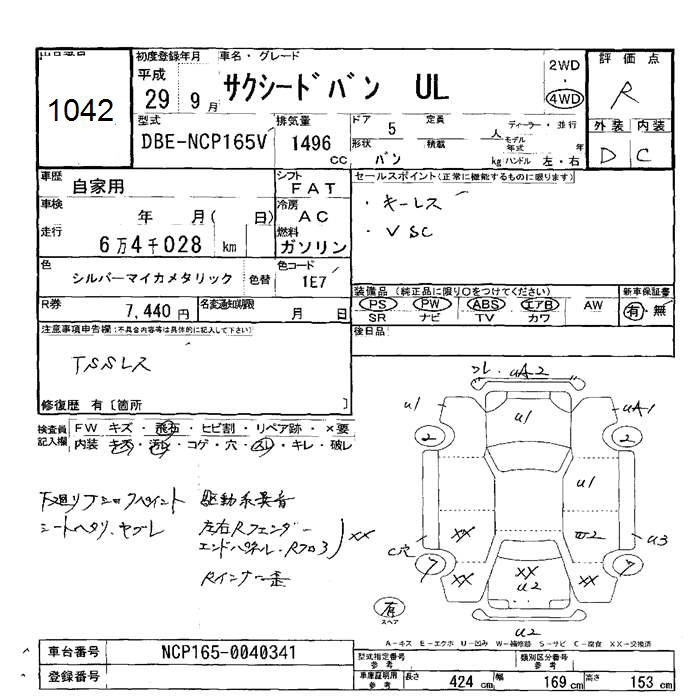 初度登録年月 車名・グレード
平成
29年 9月 サクシードバン UL
2WD
・
4WD
評価点
R
1042
型式 排気量 ドア 定員 ディーラー・並行
DBE-NCP165V 1496 CC 5 人
形状 積載 モデル年式 年
バン kg ハンドル 左・右
外装 内装
D C
車歴 自家用
シフト FAT
セールスポイント(正常に機能するものに限ります)
車検 年 月( 日)
冷房 AC
・キーレス
・VSC
走行 6万4千028 km
燃料 ガソリン
色 シルバーマイカメタリック 色替
色コード 1E7
装備品 (純正品に限り○をつけてください) 新車保証書
PS PW ABS エアB AW 有・無
SR ナビ TV カワ
R券 7,440円 名変通知期限 月 日
後日品
注意事項申告欄(不具合内容等は具体的に記入して下さい)
TSSレス
修復歴 有〔箇所 〕
検査員記入欄
FW キズ・飛石・ヒビ割・リペア跡・×要
内装 キズ・汚レ・コゲ・穴・スレ・キレ・破レ
下廻リ
駆動系異音
シートヘタリ、ヤブレ
左右Rフェンダー
エンドパネル、Rフロ3 XX
Rインナー歪
コレ・UA2
U1
U1
UA1
2
2
U1
XX
U2
C穴
U3
7
7
XX
XX
U2
XX
U2
有
スペア
A-キズ E-エクボ U-凹み W-補修跡 S-サビ C-腐食 XX-交換済
車台番号 NCP165-0040341
登録番号
型式指定番号 参考
類別区分番号 参考
車庫証明用 参考 長さ 424 cm 幅 169 cm 高さ 153 cm